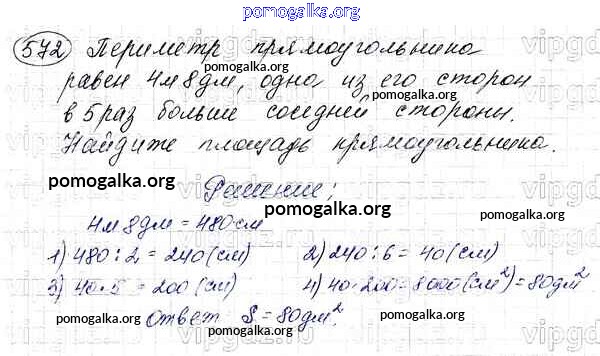 pomogalka.org
572 Периметр прямоугольника
равен 4м 8дм, одна из его сторон
pomogalka.org
в 5 раз больше соседней стороны.
Найдите площадь прямоугольника.
pomogalka.org pomogalka.org
Решение:
pomogalka.org
4м 8дм = 480см
1) 480:2 = 240(см) 2) 240:6 = 40(см)
pomogalka.org pomogalka.org
3) 40·5 = 200(см) 4) 40·200 = 8000(см²) = 80дм²
pomogalka.org ответ S = 80дм². pomogalka.org
pomogalka.org